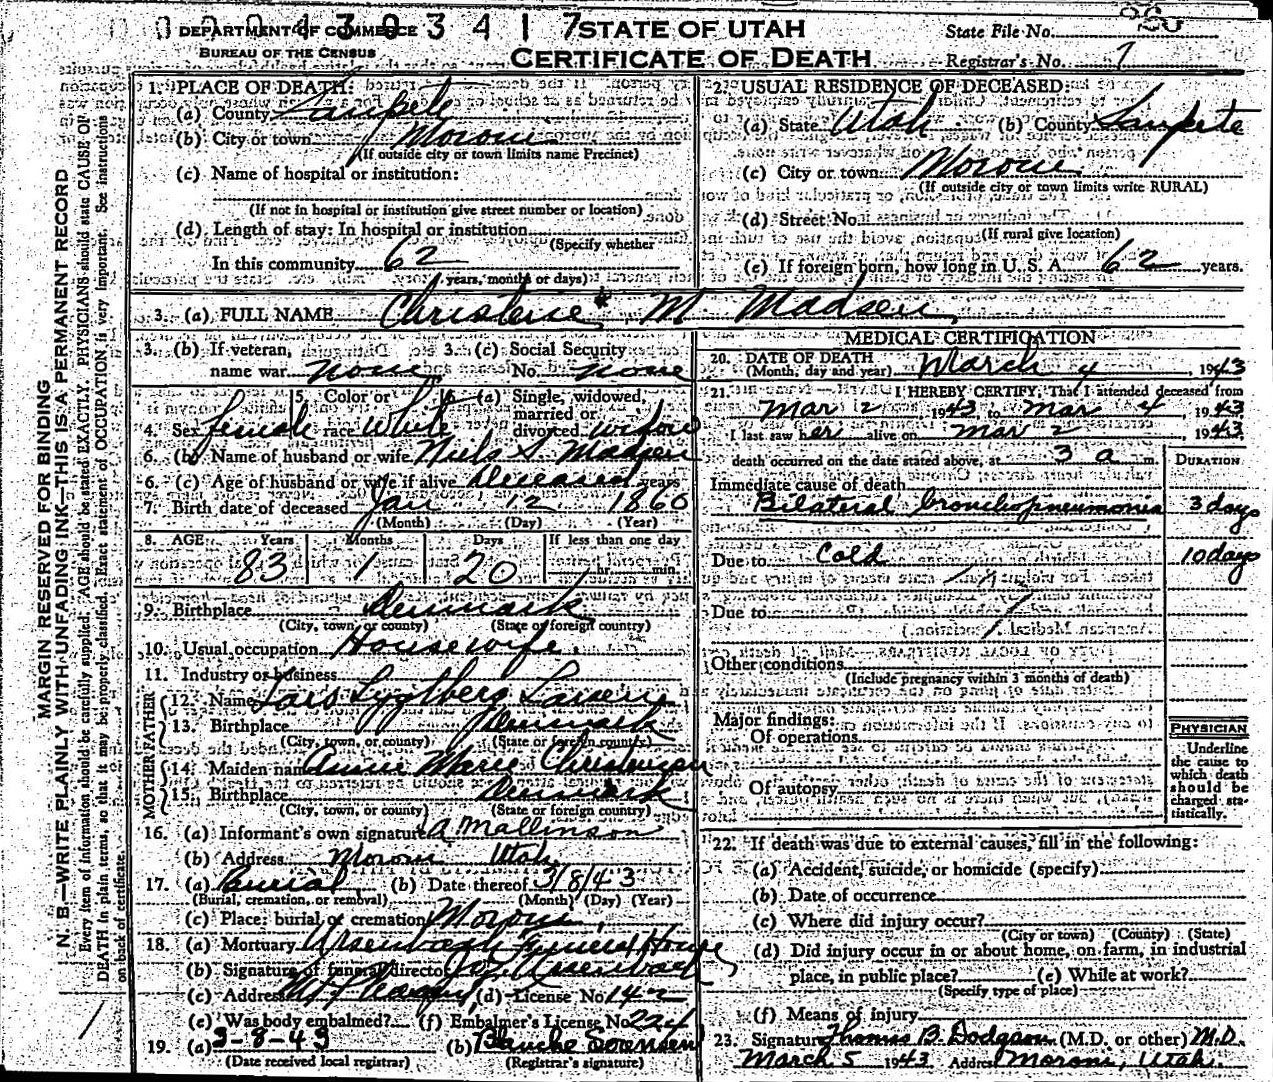 DEPARTMENT OF COMMERCE
BUREAU OF THE CENSUS
STATE OF UTAH
CERTIFICATE OF DEATH
State File No.
Registrar's No. 7
MARGIN RESERVED FOR BINDING
N. B.—WRITE PLAINLY WITH UNFADING INK—THIS IS A PERMANENT RECORD
Every item of information should be carefully supplied. AGE should be stated EXACTLY. PHYSICIANS should state CAUSE OF
DEATH in plain terms, so that it may be properly classified. Exact statement of OCCUPATION is very important. See instructions
on back of certificate.
1. PLACE OF DEATH:
(a) County Sanpete
(b) City or town Moroni
(If outside city or town limits name Precinct)
(c) Name of hospital or institution:
(If not in hospital or institution give street number or location)
(d) Length of stay: In hospital or institution
(Specify whether
In this community 62
years, months or days)
2. USUAL RESIDENCE OF DECEASED:
(a) State Utah (b) County Sanpete
(c) City or town Moroni
(If outside city or town limits write RURAL)
(d) Street No.
(If rural give location)
(e) If foreign born, how long in U. S. A. 62 years.
3. (a) FULL NAME Christene M Madsen
3. (b) If veteran, name war none
3. (c) Social Security No. none
4. Sex female
5. Color or race White
6. (a) Single, widowed, married or divorced widow
6. (b) Name of husband or wife Niels S. Madsen
6. (c) Age of husband or wife if alive Deceased years
7. Birth date of deceased Jan 12 1860
(Month) (Day) (Year)
8. AGE Years Months Days If less than one day
83 1 20 hr. min.
9. Birthplace Denmark
(City, town, or county) (State or foreign country)
10. Usual occupation Housewife.
11. Industry or business
FATHER
12. Name Lars
13. Birthplace Denmark
(City, town, or county) (State or foreign country)
MOTHER
14. Maiden name Annie Marie Christensen
15. Birthplace Denmark
(City, town, or county) (State or foreign country)
16. (a) Informant's own signature A Mallinson
(b) Address Moroni Utah
17. (a) Burial (b) Date thereof 3/8/43
(Burial, cremation, or removal) (Month) (Day) (Year)
(c) Place: burial or cremation Moroni
18. (a) Mortuary Ursenbach Funeral Home
(b) Signature of funeral director Ursenbach
(c) Address Mt Pleasant (d) License No. 142
(e) Was body embalmed? (f) Embalmer's License No. 224
19. (a) 3-8-43 (b) Blanche Sorensen
(Date received local registrar) (Registrar's signature)
MEDICAL CERTIFICATION
20. DATE OF DEATH
(Month, day and year) March 4, 1943
21. I HEREBY CERTIFY, That I attended deceased from
Mar 2, 1943 to Mar 4, 1943
I last saw her alive on Mar 2, 1943
death occurred on the date stated above, at 3 a m.
DURATION
Immediate cause of death
Bilateral bronchopneumonia 3 days
Due to Cold 10 days
Due to
Other conditions
(Include pregnancy within 3 months of death)
Major findings:
Of operations
Of autopsy
PHYSICIAN
Underline
the cause to
which death
should be
charged sta-
tistically.
22. If death was due to external causes, fill in the following:
(a) Accident, suicide, or homicide (specify)
(b) Date of occurrence
(c) Where did injury occur?
(City or town) (County) (State)
(d) Did injury occur in or about home, on farm, in industrial
place, in public place? (e) While at work?
(Specify type of place)
(f) Means of injury
23. Signature Thomas B. Dodgson (M.D. or other) M.D.
March 5 1943 Address Moroni, Utah.